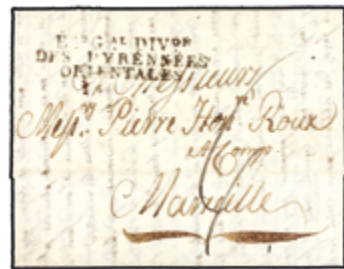 Bau Gal DIVon
DES PYRÉNNÉES
ORIENTALES
Messieurs
Messrs Pierre Honré Roux
et Comp
Marseille